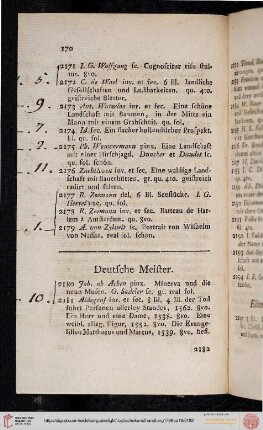 170
2171 I. G. Wolfgang sc. Cognoscitur risu stul-
tus. 8vo.
5. 2172 C. de Wael inv. et fec. 6 Bl. ländliche
Gesellschaften und Lustbarkeiten. qu. 4to.
geistreiche Blätter.
9. 2173 Ant. Waterloo inv. et fec. Eine schöne
Landschaft mit Bäumen, in der Mitte ein
Mann mit einem Grabscheit. qu. fol.
7. 2174 Id. fec. Ein flacher holländischer Prospekt.
kl. qu. fol.
2. 2175 Ph. Wouvermann pinx. Eine Landschaft
mit einer Hirschjagd. Dancker et Dankts sc.
qu. fol. schön.
11. 2176 Zachtleven inv. et fec. Eine waldige Land-
schaft mit Bauerhütten. gr. qu. 4to. geistreich
radirt und schön.
2177 R. Zeemann del. 6 Bl. Seestücke. I. G.
Hertel exc. qu. fol.
2178 R. Zeemann inv. et fec. Batteau de Har-
lem à Amsterdam. qu. 8vo.
1. 2179 A. von Zylvelt sc. Portrait von Wilhelm
von Nassoe. real fol. schön.
Deutsche Meister.
2180 Joh. ab Achen pinx. Minerva und die
neun Musen. G. Sadeler sc. gr. real fol.
10. 2181 Aldegraf inv. et fec. 8 Bl. 4 Bl. der Tod
führt Personen allerley Standes, 1562. 8vo.
Ein Herr und eine Dame, 1538. 8vo. Eine
weibl. alleg. Figur, 1552. 8vo. Die Evange-
listen Matthäus und Marcus, 1539. 8vo. hess.
2182